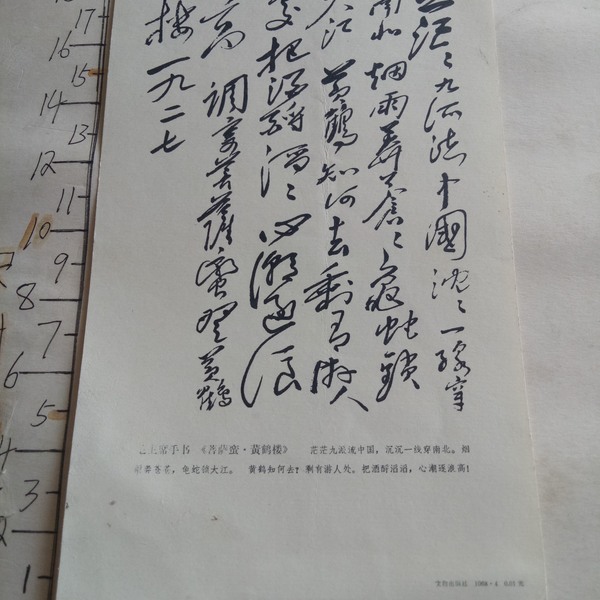 茫〻九派流中國沈〻一線穿
南北烟雨莽蒼〻龜蛇鎖
大江 黃鶴知何去剩有游人
處把酒酹滔〻心潮逐浪
高 調寄菩薩蠻登黃鶴
樓一九二七
毛主席手书《菩萨蛮·黄鹤楼》 茫茫九派流中国，沉沉一线穿南北。烟
雨莽苍苍，龟蛇锁大江。 黄鹤知何去？剩有游人处。把酒酹滔滔，心潮逐浪高！
文物出版社
17
16
15
14
13
12
11
10
9
8
7
6
5
4
3
2
1